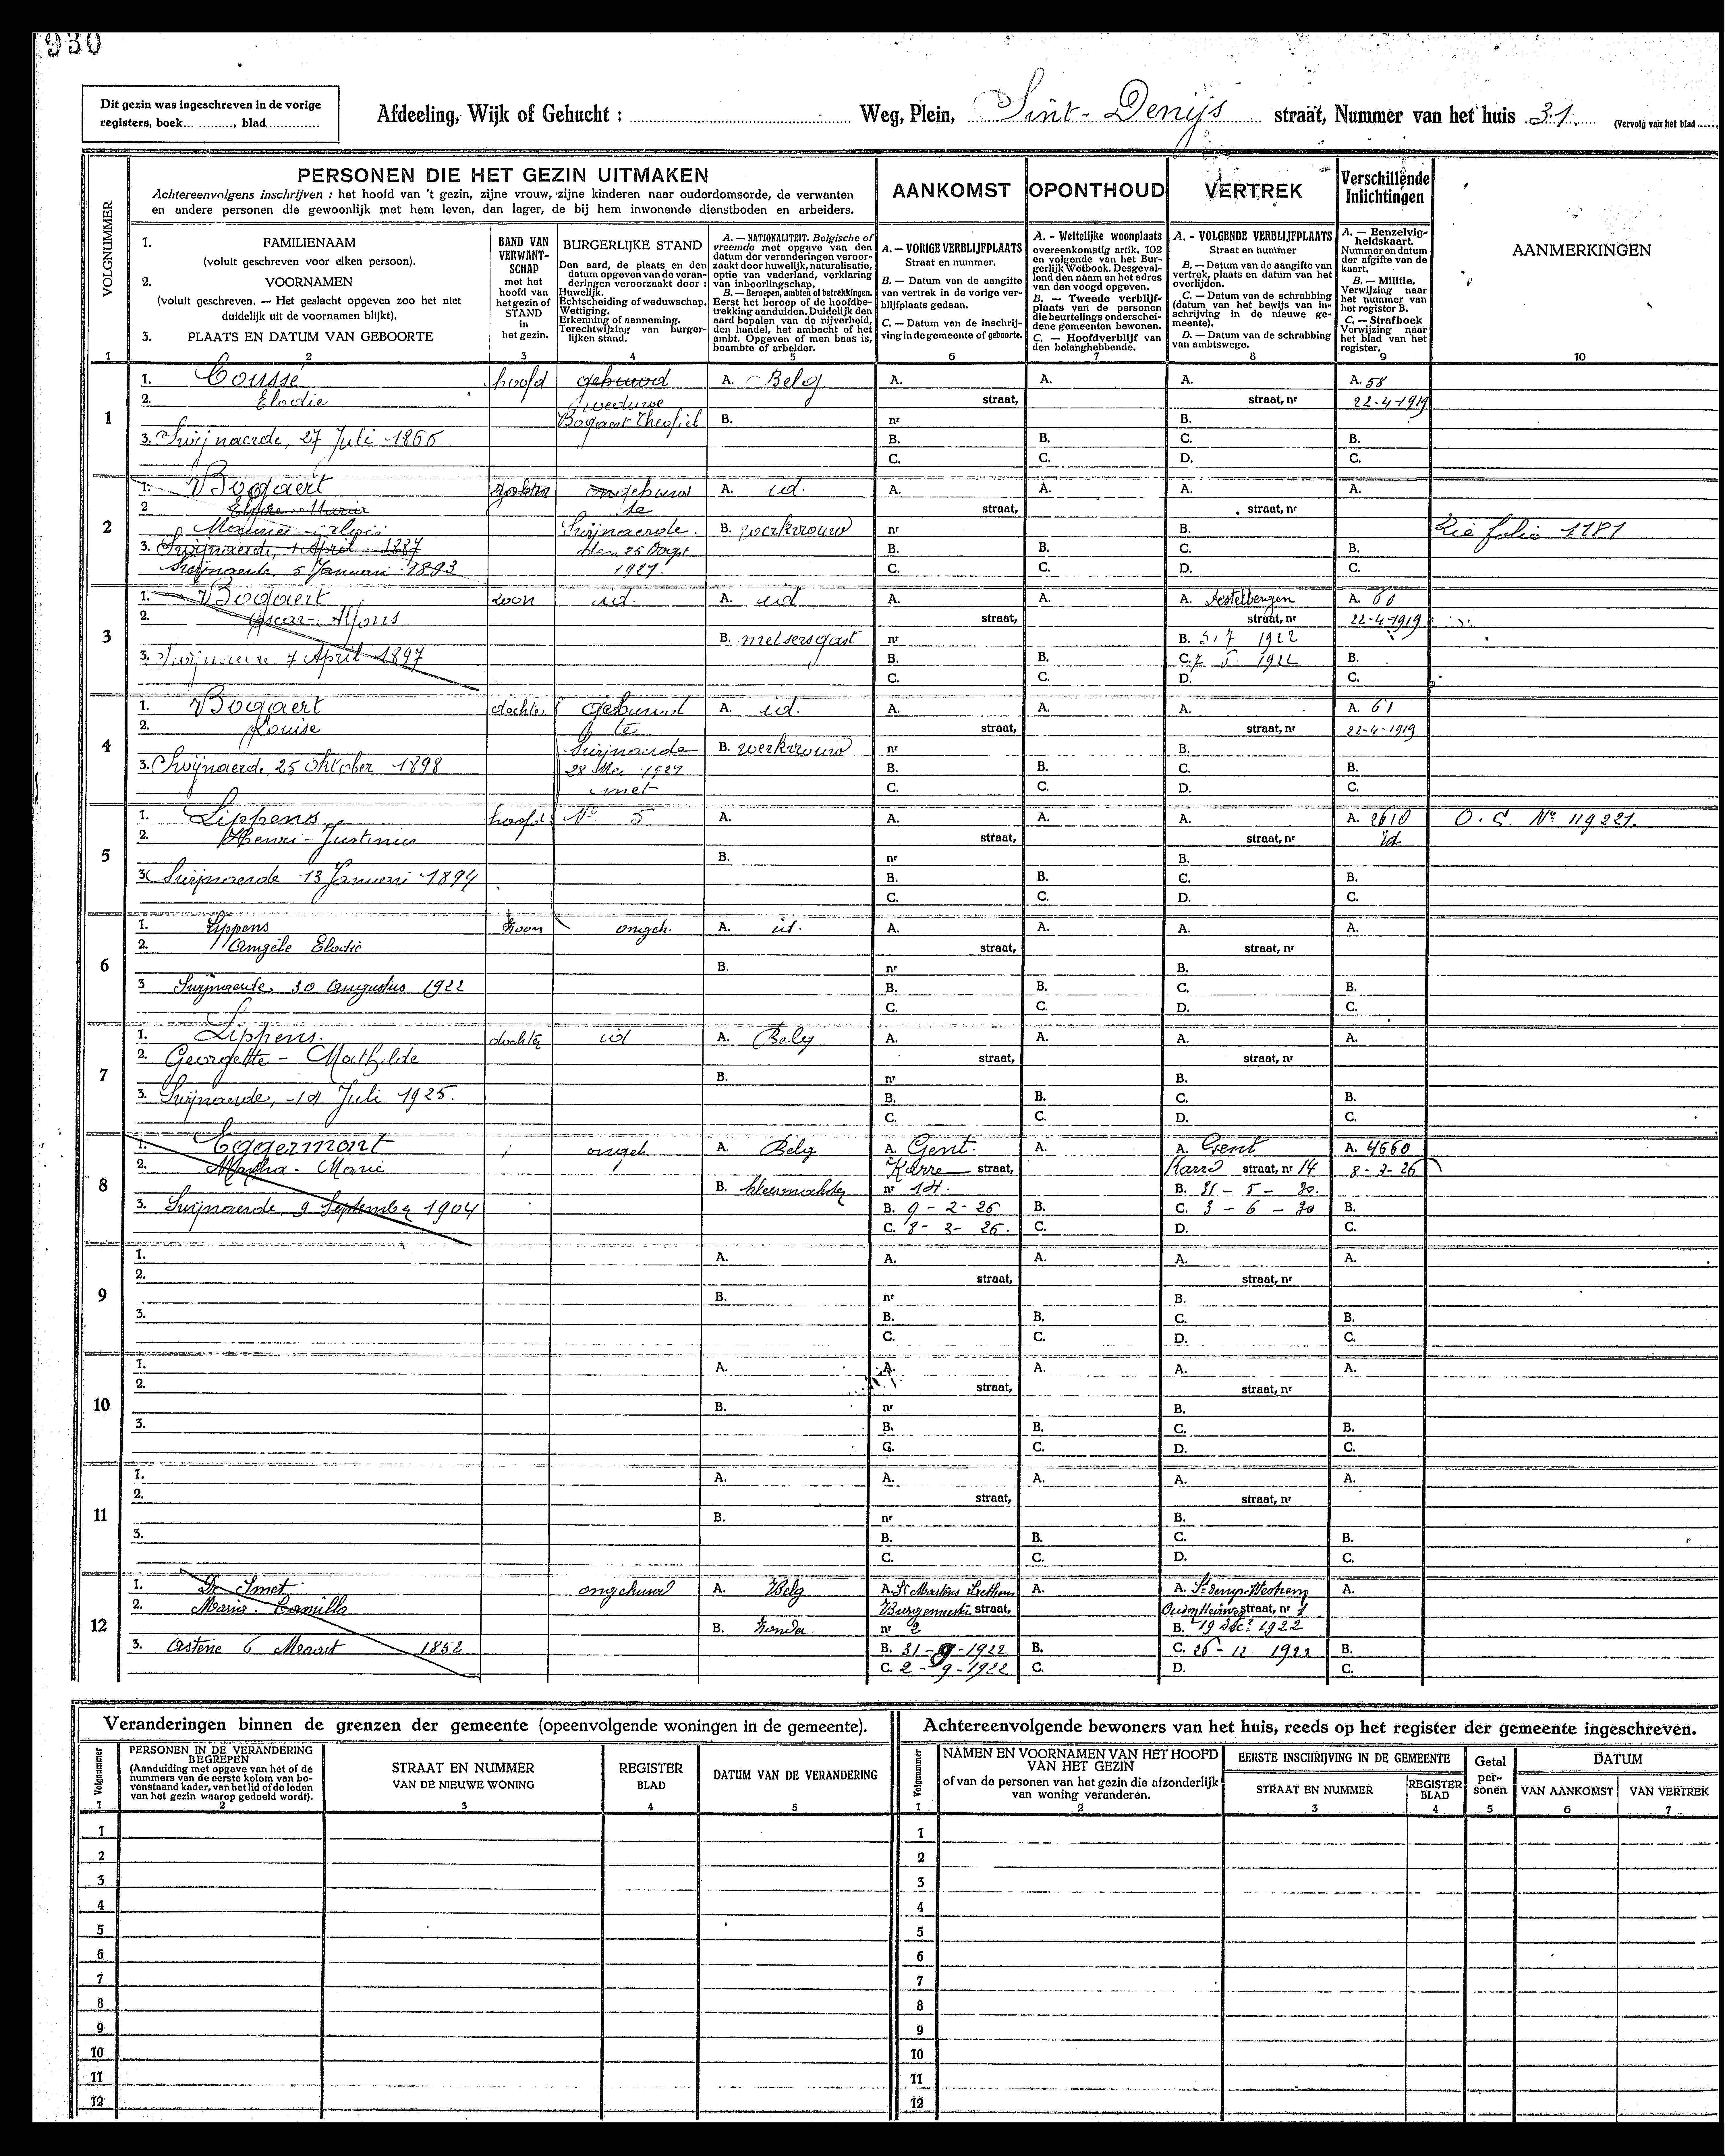 930
Dit gezin was ingeschreven in de vorige
registers, boek............, blad.............
Afdeeling, Wijk of Gehucht : Weg, Plein, Sint-Denijs straat, Nummer van het huis 31. (Vervolg van het blad
PERSONEN DIE HET GEZIN UITMAKEN
Achtereenvolgens inschrijven : het hoofd van 't gezin, zijne vrouw, zijne kinderen naar ouderdomsorde, de verwanten
en andere personen die gewoonlijk met hem leven, dan lager, de bij hem inwonende dienstboden en arbeiders.
AANKOMST
OPONTHOUD
VERTREK
Verschillende
Inlichtingen
VOLGNUMMER
1
1. FAMILIENAAM
(voluit geschreven voor elken persoon).
2. VOORNAMEN
(voluit geschreven. — Het geslacht opgeven zoo het niet
duidelijk uit de voornamen blijkt).
3. PLAATS EN DATUM VAN GEBOORTE
2
BAND VAN
VERWANT-
SCHAP
met het
hoofd van
het gezin of
STAND
in
het gezin.
3
BURGERLIJKE STAND
Den aard, de plaats en den
datum opgeven van de veran-
deringen veroorzaakt door :
Huwelijk.
Echtscheiding of weduwschap.
Wettiging.
Erkenning of aanneming.
Terechtwijzing van burger-
lijken stand.
4
A. — NATIONALITEIT. Belgische of
vreemde met opgave van den
datum der veranderingen veroor-
zaakt door huwelijk, naturalisatie,
optie van vaderland, verklaring
van inboorlingschap.
B. — Beroepen, ambten of betrekkingen.
Eerst het beroep of de hoofdbe-
trekking aanduiden. Duidelijk den
aard bepalen van de nijverheid,
den handel, het ambacht of het
ambt. Opgeven of men baas is,
beambte of arbeider.
5
A. — VORIGE VERBLIJFPLAATS
Straat en nummer.
B. — Datum van de aangifte
van vertrek in de vorige ver-
blijfplaats gedaan.
C. — Datum van de inschrij-
ving in de gemeente of geboorte.
6
A. - Wettelijke woonplaats
overeenkomstig artik. 102
en volgende van het Bur-
gerlijk Wetboek. Desgeval-
lend den naam en het adres
van den voogd opgeven.
B. — Tweede verblijf-
plaats van de personen
die beurtelings onderschei-
dene gemeenten bewonen.
C. — Hoofdverblijf van
den belanghebbende.
7
A. - VOLGENDE VERBLIJFPLAATS
Straat en nummer
B. — Datum van de aangifte van
vertrek, plaats en datum van het
overlijden.
C. — Datum van de schrabbing
(datum van het bewijs van in-
schrijving in de nieuwe ge-
meente).
D. — Datum van de schrabbing
van ambtswege.
8
A. — Eenzelvig-
heidskaart.
Nummer en datum
der afgifte van de
kaart.
B. — Militie.
Verwijzing naar
het nummer van
het register B.
C. — Strafboek
Verwijzing naar
het blad van het
register.
9
AANMERKINGEN
10
1
1. Cousse hoofd gehuwd A. Belg A. A. A. A. 58
2. Elodie weduwe straat, straat, nr 22-4-1919
Bogaert Theofiel B. nr B.
3. Swijnaerde, 27 Juli 1866 B. B. C. B.
C. C. D. C.
2
1. Bogaert ongehuwd A. id. A. A. A. A.
2 te straat, straat, nr
Swijnaerde. B. werkvrouw nr B. Zie folio 1181
3. Swijnaerde, 1 April 1887 den 25 Oogst B. B. C. B.
Swijnaerde, 5 Januari 1893 1921. C. C. D. C.
3
1. Bogaert zoon id. A. id A. A. A. Destelbergen A. 60
2. Oscar-Alfons straat, straat, nr 22-4-1919
B. metsersgast nr B. 5. 7 1922
3. 7 April 1897 B. B. C. 1922 B.
C. C. D. C.
4
1. Bogaert dochter gehuwd A. id. A. A. A. A. 61
2. Louise te straat, straat, nr 22-4-1919
Swijnaerde B. werkvrouw nr B.
3. Swijnaerde, 25 Oktober 1898 28 Mei 1921 B. B. C. B.
met C. C. D. C.
5
1. Lippens hoofd No 5 A. A. A. A. A. 2610 O. S. No 119221.
2. Henri-Justinus straat, straat, nr id
B. nr B.
3 Swijnaerde 13 Januari 1894 B. B. C. B.
C. C. D. C.
6
1. Lippens zoon ongeh. A. id. A. A. A. A.
2. Angèle Elodie straat, straat, nr
B. nr B.
3 Swijnaerde 30 Augustus 1922 B. B. C. B.
C. C. D. C.
7
1. Lippens. dochter id A. Belg A. A. A. A.
2. Georgette - Mathilde straat, straat, nr
B. nr B.
3. Swijnaerde, 14 Juli 1925. B. B. C. B.
C. C. D. C.
8
1. Eggermont ongeh. A. Belg A. Gent. A. A. Gent A. 4660
2. Martha - Marie Karre straat, Karre straat, nr 14 8-3-26
B. kleermaakster nr 14. B. 31 - 5 - 30.
3. Swijnaerde, 9 September 1904 B. 9 - 2 - 26 B. C. 3 - 6 - 30 B.
C. 8 - 3 - 26. C. D. C.
9
1. A. A. A. A. A.
2. straat, straat, nr
B. nr B.
3. B. B. C. B.
C. C. D. C.
10
1. A. A. A. A. A.
2. straat, straat, nr
B. nr B.
3. B. B. C. B.
C. C. D. C.
11
1. A. A. A. A. A.
2. straat, straat, nr
B. nr B.
3. B. B. C. B.
C. C. D. C.
12
1. De Smet ongehuwd A. Belg A. St Martens Laethem A. A. St Denys-Westrem A.
2. Maria - Camilla Burgemeester straat, straat, nr 1
B. nr 2 B. 19 Dec. 1922
3. Astene 6 Maart 1852 B. 31-8-1922 B. C. 26 - 12 1922 B.
C. 2-9-1922 C. D. C.
Veranderingen binnen de grenzen der gemeente (opeenvolgende woningen in de gemeente).
Volgnummer
1
PERSONEN IN DE VERANDERING
BEGREPEN
(Aanduiding met opgave van het of de
nummers van de eerste kolom van bo-
venstaand kader, van het lid of de leden
van het gezin waarop gedoeld wordt).
2
STRAAT EN NUMMER
VAN DE NIEUWE WONING
3
REGISTER
BLAD
4
DATUM VAN DE VERANDERING
5
1
2
3
4
5
6
7
8
9
10
11
12
Achtereenvolgende bewoners van het huis, reeds op het register der gemeente ingeschreven.
Volgnummer
1
NAMEN EN VOORNAMEN VAN HET HOOFD
VAN HET GEZIN
of van de personen van het gezin die afzonderlijk
van woning veranderen.
2
EERSTE INSCHRIJVING IN DE GEMEENTE
STRAAT EN NUMMER
3
REGISTER
BLAD
4
Getal
per-
sonen
5
DATUM
VAN AANKOMST
6
VAN VERTREK
7
1
2
3
4
5
6
7
8
9
10
11
12